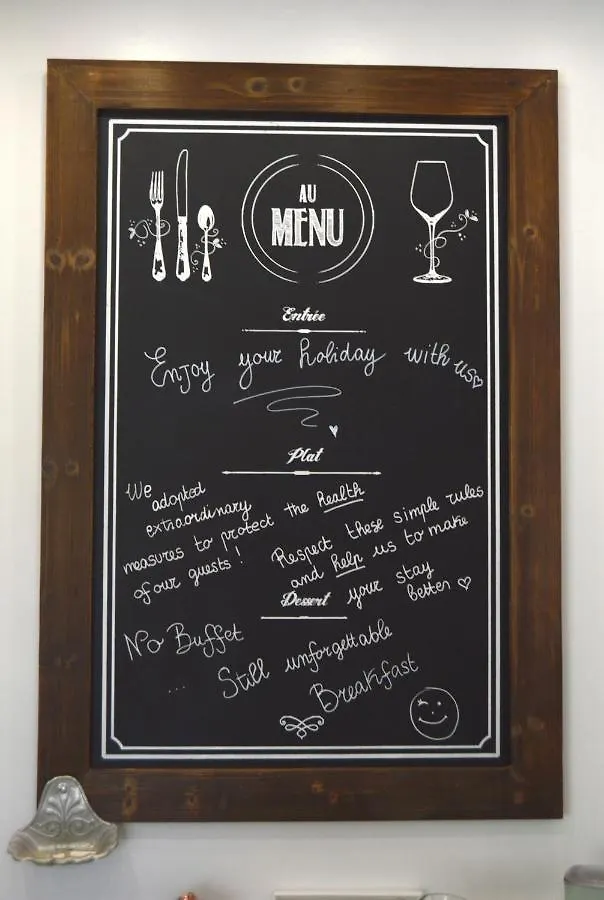 AU
MENU
Entrée
Enjoy your holiday with us
Plat
We adopted
extraordinary
measures to protect the health
of our guests !
Respect these simple rules
and help us to make
your stay
better
Dessert
No Buffet
... Still unforgettable
Breakfast